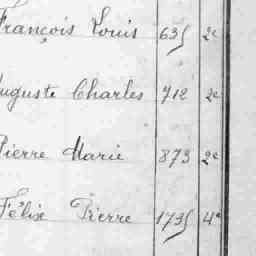 François Louis 635 2e
Auguste Charles 712 2e
Pierre Marie 873 2e
Félix Pierre 1735 4e